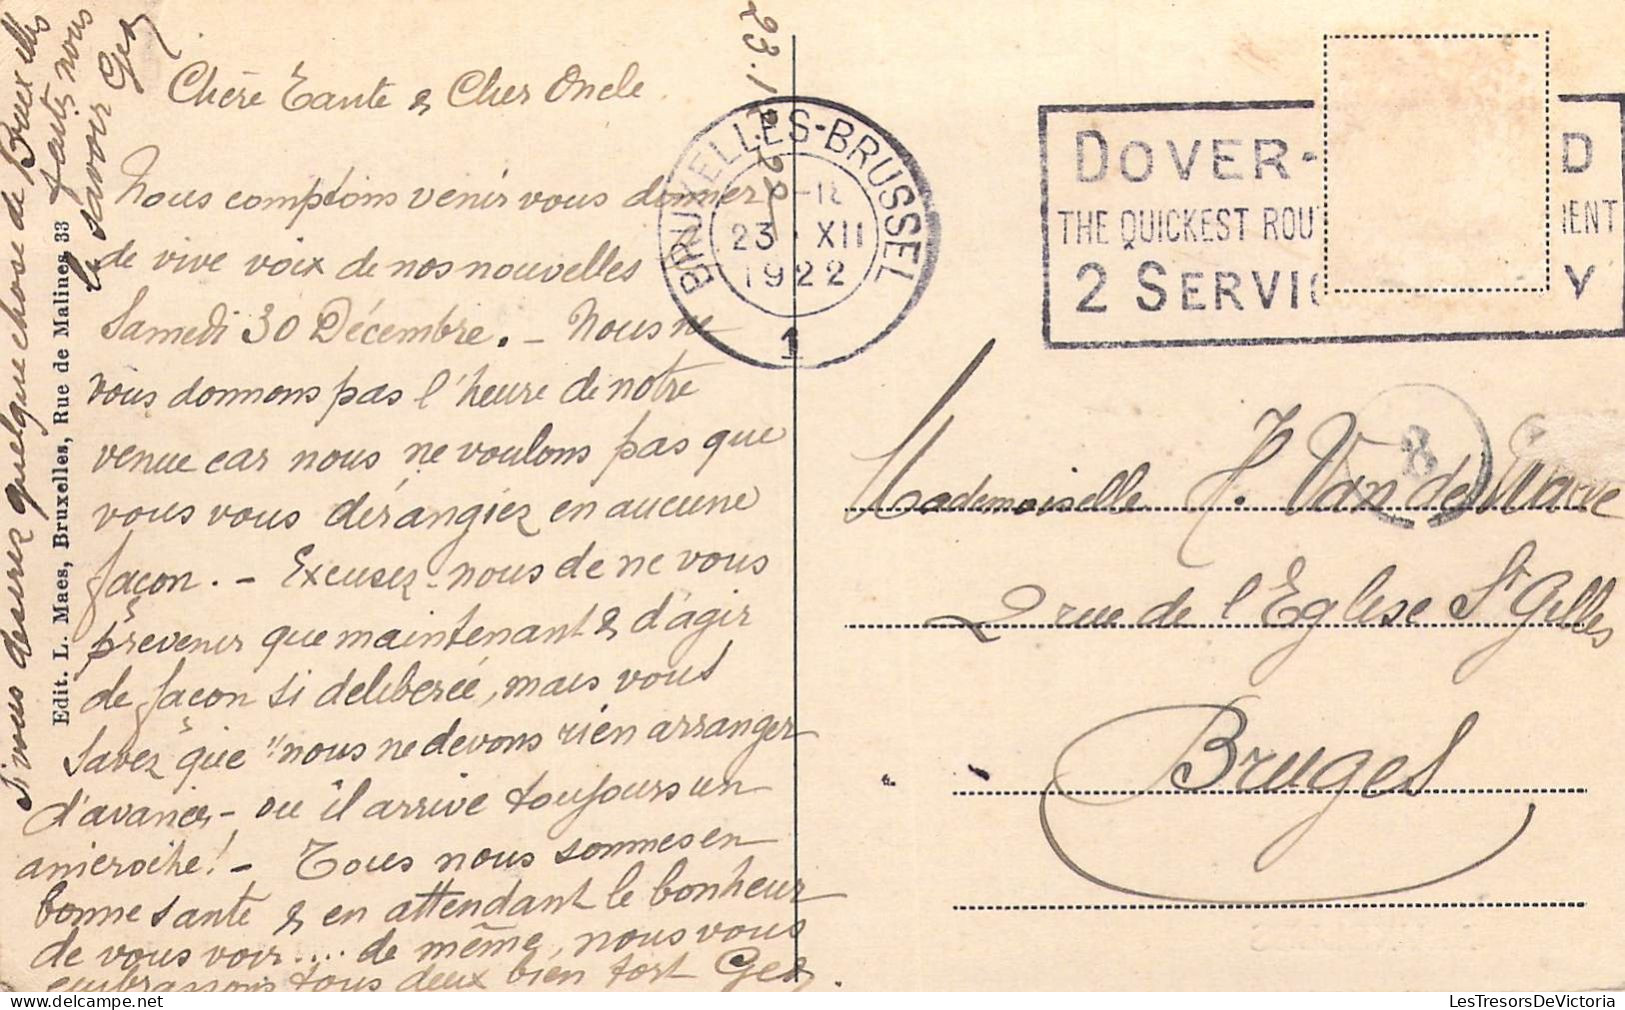 23.12.22
Chère Tante & Cher Oncle
Nous comptons venir vous donner
de vive voix de nos nouvelles
Samedi 30 Décembre. - Nous ne
vous donnons pas l'heure de notre
venue car nous ne voulons pas que
vous vous dérangiez en aucune
façon. - Excusez-nous de ne vous
prévenir que maintenant & d'agir
de façon si deliberée, mais vous
savez que "nous ne devons rien arranger
d'avance - ou il arrive toujours un
anicroche! - Tous nous sommes en
bonne santé & en attendant le bonheur
de vous voir.... de même, nous vous
embrassons tous deux bien fort Ger.
Si vous désirez quelque chose de Bruxelles
faites nous
le savoir Ger
Edit. L. Maes, Bruxelles, Rue de Malines 33
BRUXELLES-BRUSSEL
23 XII
1922
1
DOVER- D
THE QUICKEST ROU IENT
2 SERVIC Y
8
Mademoiselle H. Van de
2 rue de l'Eglise St Gilles
Bruges
LesTresorsDeVictoria